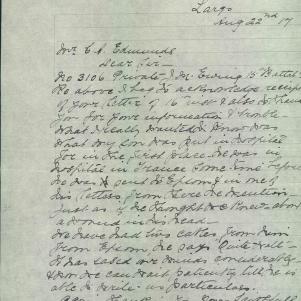 Largo
Aug 22nd 17
Mr. E. A. Edmunds
Dear Sir
No 3106 Private J. M. Ewing 15 Battal.
Re above I beg to acknowledge receipt
of your letter of 16 inst I also thank
you for your information & trouble
What I really wanted to know was
what my son was put in Hospital
for in the first place He was in
Hospital in France some time before
he was sent to Epsom & in one of
his letters from there he mentions
just as if he thought we knew about
a wound in his head
We have had two cables from him
from Epsom he says quite well
it has eased our minds considerably
& now we can wait patiently till he is
able to write us particulars